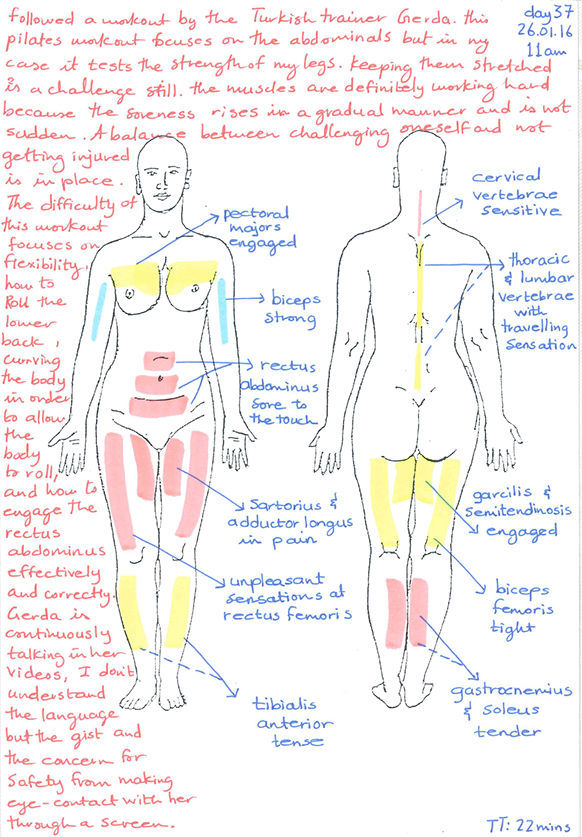 followed a workout by the Turkish trainer Gerda. this
pilates workout focuses on the abdominals but in my
case it tests the strength of my legs. keeping them stretched
is a challenge still. the muscles are definitely working hard
because the soreness rises in a gradual manner and is not
sudden. A balance between challenging oneself and not
getting injured
is in place.
The difficulty of
this workout
focuses on
flexibility,
how to
Roll the
lower
back,
curving
the body
in order
to allow
the
body
to roll,
and how to
engage the
rectus
abdominus
effectively
and correctly.
Gerda is
continuously
talking in her
videos, I don't
understand
the language
but the gist and
the concern for
safety from making
eye-contact with her
through a screen.
day 37
26.01.16
11am
pectoral
majors
engaged
biceps
strong
rectus
abdominus
sore to
the touch
Sartorius &
adductor longus
in pain
unpleasant
sensations at
rectus femoris
tibialis
anterior
tense
cervical
vertebrae
sensitive
thoracic
& lumbar
vertebrae
with
travelling
sensation
garcilis &
semitendinosis
engaged
biceps
femoris
tight
gastrocnemius
& soleus
tender
TT: 22mins